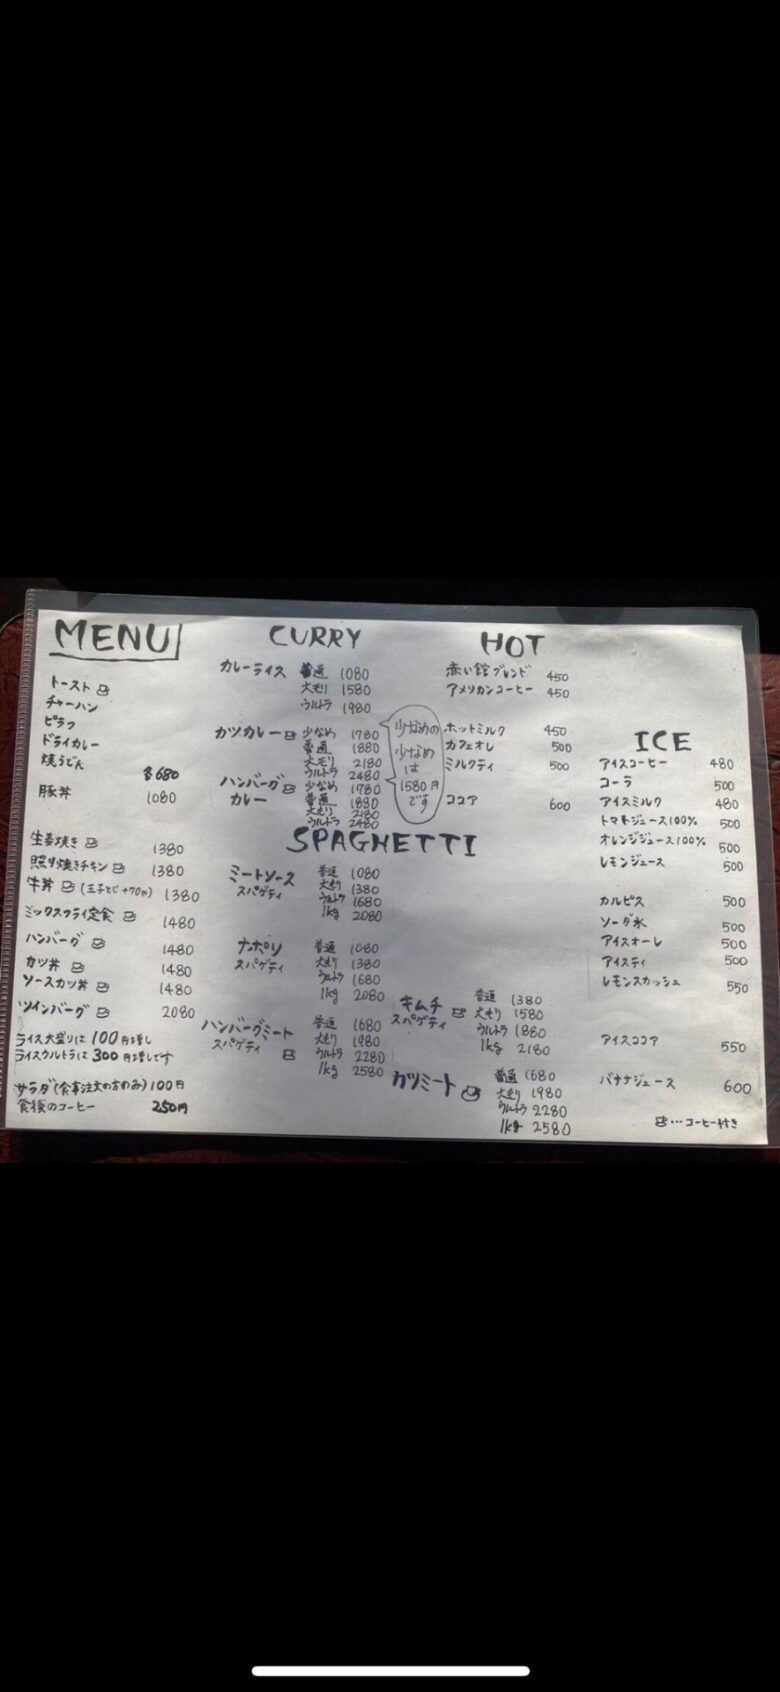 MENU
トースト
チャーハン
ピラフ
ドライカレー
焼うどん
各680
豚丼 1080
生姜焼き 1380
照り焼きチキン 1380
牛丼 (玉子とじ+70円) 1380
ミックスフライ定食 1480
ハンバーグ 1480
カツ丼 1480
ソースカツ丼 1480
ツインバーグ 2080
ライス大盛りは100円増し
ライスウルトラは300円増しです
サラダ(食事注文の方のみ)100円
食後のコーヒー 250円
CURRY
カレーライス 普通 1080
大もり 1580
ウルトラ 1980
カツカレー 少なめ 1780
普通 1880
大モリ 2180
ウルトラ 2480
ハンバーグ 少なめ 1780
カレー 普通 1880
大もり 2180
ウルトラ 2480
少なめの
少なめ
は
1580円
です
SPAGHETTI
ミートソース 普通 1080
スパゲティ 大もり 1380
ウルトラ 1680
1kg 2080
ナポリ 普通 1080
スパゲティ 大もり 1380
ウルトラ 1680
1kg 2080
ハンバーグミート 普通 1680
スパゲティ 大もり 1980
ウルトラ 2280
1kg 2580
キムチ 普通 1380
スパゲティ 大もり 1580
ウルトラ 1880
1kg 2180
カツミート 普通 1680
大もり 1980
ウルトラ 2280
1kg 2580
HOT
赤い館ブレンド 450
アメリカンコーヒー 450
ホットミルク 450
カフェオレ 500
ミルクティ 500
ココア 600
ICE
アイスコーヒー 480
コーラ 500
アイスミルク 480
トマトジュース100% 500
オレンジジュース100% 500
レモンジュース 500
カルピス 500
ソーダ水 500
アイスオーレ 500
アイスティ 500
レモンスカッシュ 550
アイスココア 550
バナナジュース 600
…コーヒー付き